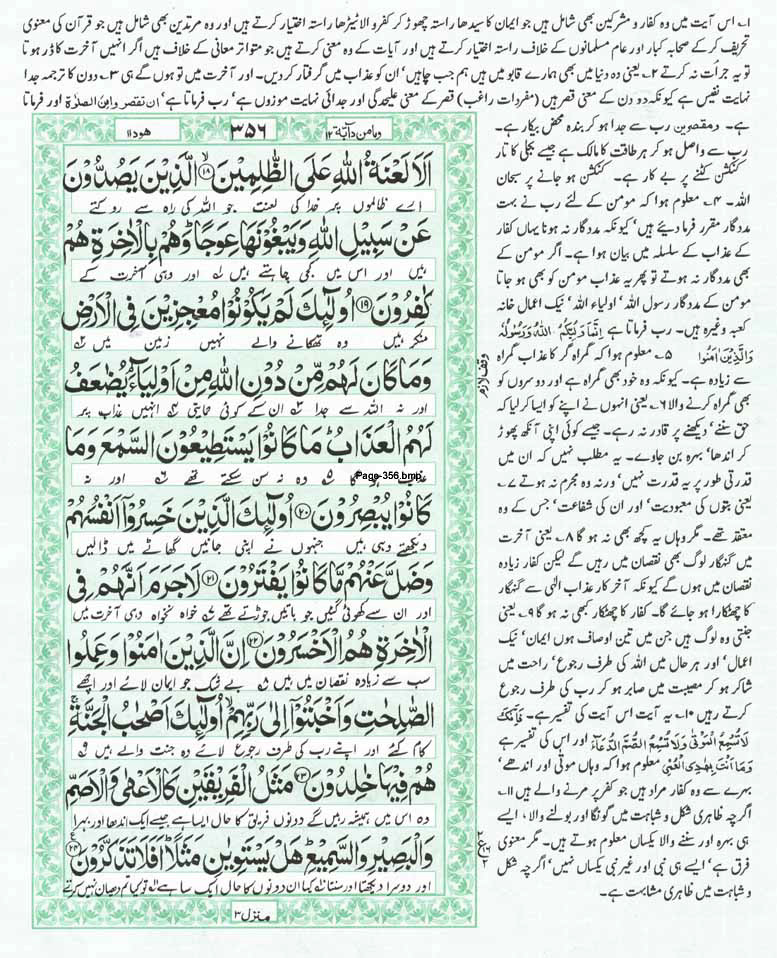 ۱؎ اس آیت میں وہ کفار و مشرکین بھی شامل ہیں جو ایمان کا سیدھا راستہ چھوڑ کر کفر والا ٹیڑھا راستہ اختیار کرتے ہیں اور وہ مرتدین بھی شامل ہیں جو قرآن کی معنوی
تحریف کر کے صحابہ کبار اور عام مسلمانوں کے خلاف راستہ اختیار کرتے ہیں اور آیات کے وہ معنی کرتے ہیں جو متواتر معانی کے خلاف ہیں اگر انہیں آخرت کا ڈر ہوتا
تو یہ جرأت نہ کرتے ۲؎ یعنی وہ دنیا میں بھی ہمارے قابو میں ہیں ہم جب چاہیں' ان کو عذاب میں گرفتار کر دیں۔ اور آخرت میں تو ہوں گے ہی ۳؎ دون کا ترجمہ جدا
نہایت نفیس ہے کیونکہ دو دن کے معنی قصر ہیں (مفردات راغب) قصر کے معنی علیحدگی اور جدائی نہایت موزوں ہے' رب فرماتا ہے' ان تقصروا من الصلاۃ اور فرماتا
ومامن دابۃ ۱۲
۳۵۶
ھود ۱۱
اَلَا لَعْنَةُ اللّٰهِ عَلَى الظّٰلِمِيْنَ ﴿۱۸﴾ الَّذِيْنَ يَصُدُّوْنَ
ارے ظالموں پر خدا کی لعنت جو اللہ کی راہ سے روکتے
عَنْ سَبِيْلِ اللّٰهِ وَيَبْغُوْنَهَا عِوَجًا وَهُمْ بِالْاٰخِرَةِ هُمْ
ہیں اور اس میں کجی چاہتے ہیں ۱؎ اور وہی آخرت کے
كٰفِرُوْنَ ﴿۱۹﴾ اُولٰٓئِكَ لَمْ يَكُوْنُوْا مُعْجِزِيْنَ فِى الْاَرْضِ
منکر ہیں وہ تھکانے والے نہیں زمین میں ۲؎
وَمَا كَانَ لَهُمْ مِّنْ دُوْنِ اللّٰهِ مِنْ اَوْلِيَآءَ يُضٰعَفُ
اور نہ اللہ سے جدا ۳؎ ان کے کوئی حمایتی ۴؎ انہیں عذاب پر
لَهُمُ الْعَذَابُ مَا كَانُوْا يَسْتَطِيْعُوْنَ السَّمْعَ وَمَا
عذاب ہو گا ۵؎ وہ نہ سن سکتے تھے ۶؎ اور نہ
Page-356.bmp
كَانُوْا يُبْصِرُوْنَ ﴿۲۰﴾ اُولٰٓئِكَ الَّذِيْنَ خَسِرُوْٓا اَنْفُسَهُمْ
دیکھتے وہی ہیں جنہوں نے اپنی جانیں گھاٹے میں ڈالیں
وَضَلَّ عَنْهُمْ مَّا كَانُوْا يَفْتَرُوْنَ ﴿۲۱﴾ لَا جَرَمَ اَنَّهُمْ فِى
اور ان سے کھوئی گئیں جو باتیں جوڑتے تھے ۷؎ خواہ نخواہ وہی آخرت میں
الْاٰخِرَةِ هُمُ الْاَخْسَرُوْنَ ﴿۲۲﴾ اِنَّ الَّذِيْنَ اٰمَنُوْا وَعَمِلُوا
سب سے زیادہ نقصان میں ہیں ۸؎ بے شک جو ایمان لائے اور اچھے
الصّٰلِحٰتِ وَاَخْبَتُوْٓا اِلٰى رَبِّهِمْ اُولٰٓئِكَ اَصْحٰبُ الْجَنَّةِ
کام کئے اور اپنے رب کی طرف رجوع لائے وہ جنت والے ہیں ۹؎
هُمْ فِيْهَا خٰلِدُوْنَ ﴿۲۳﴾ مَثَلُ الْفَرِيْقَيْنِ كَالْاَعْمٰى وَالْاَصَمِّ
وہ اس میں ہمیشہ رہیں گے دونوں فریق کا حال ایسا ہے جیسے ایک اندھا اور بہرا
وَالْبَصِيْرِ وَالسَّمِيْعِ هَلْ يَسْتَوِيٰنِ مَثَلًا اَفَلَا تَذَكَّرُوْنَ ﴿۲۴﴾
اور دوسرا دیکھتا اور سنتا ۱۰؎ کیا ان دونوں کا حال ایک سا ہے ۱۱؎ تو کیا تم دھیان نہیں کرتے
منزل ۳
وقف لازم
ہے۔ و مقصرین رب سے جدا ہو کر بندہ محض بیکار ہے۔
رب سے واصل ہو کر ہر طاقت کا مالک ہے جیسے بجلی کا تار
کنکشن کٹنے پر بے کار ہے۔ کنکشن ہو جانے پر سبحان
اللہ۔ ۴؎ معلوم ہوا کہ مومن کے لئے رب نے بہت
مددگار مقرر فرما دیئے ہیں' کیونکہ مددگار نہ ہونا یہاں کفار
کے عذاب کے سلسلہ میں بیان ہوا ہے۔ اگر مومن کے
بھی مددگار نہ ہوتے تو پھر یہ عذاب مومن کو بھی ہو جاتا
مومن کے مددگار رسول اللہ' اولیاء اللہ' نیک اعمال خانہ
کعبہ وغیرہ ہیں۔ رب فرماتا ہے اِنَّمَا وَلِيُّكُمُ اللّٰهُ وَرَسُوْلُهٗ
وَالَّذِيْنَ اٰمَنُوْا ۵؎ معلوم ہوا کہ گمراہ گر کا عذاب گمراہ
سے زیادہ ہے۔ کیونکہ وہ خود بھی گمراہ ہے اور دوسروں کو
بھی گمراہ کرنے والا ۶؎ یعنی انہوں نے اپنے کو ایسا کر لیا کہ
حق سننے' دیکھنے پر قادر نہ رہے۔ جیسے کوئی اپنی آنکھ پھوڑ
کر اندھا' بہرہ بن جاوے۔ یہ مطلب نہیں کہ ان میں
قدرتی طور پر یہ قدرت نہیں' ورنہ وہ مجرم نہ ہوتے ۷؎
یعنی بتوں کی معبودیت' اور ان کی شفاعت' جس کے وہ
معتقد تھے۔ مگر وہاں یہ کچھ بھی نہ ہو گا ۸؎ یعنی آخرت
میں گنہگار لوگ بھی نقصان میں رہیں گے لیکن کفار زیادہ
نقصان میں ہوں گے کیونکہ آخر کار عذاب الٰہی سے گنہگار
کا چھٹکارا ہو جائے گا۔ کفار کا چھٹکارا کبھی نہ ہو گا ۹؎ یعنی
جنتی وہ لوگ ہیں جن میں تین اوصاف ہوں ایمان' نیک
اعمال' اور ہر حال میں اللہ کی طرف رجوع' راحت میں
شاکر ہو کر مصیبت میں صابر ہو کر رب کی طرف رجوع
کرتے رہیں ۱۰؎ یہ آیت اس آیت کی تفسیر ہے۔ فَاِنَّكَ
لَا تُسْمِعُ الْمَوْتٰى وَلَا تُسْمِعُ الصُّمَّ الدُّعَآءَ اور اس کی تفسیر ہے
وَمَآ اَنْتَ بِهٰدِى الْعُمْىِ معلوم ہوا کہ وہاں موتی اور اندھے'
بہرے سے وہ کفار مراد ہیں جو کفر پر مرنے والے ہیں ۱۱؎
اگرچہ ظاہری شکل و شباہت میں گونگا اور بولنے والا' ایسے
ہی بہرہ اور سننے والا یکساں معلوم ہوتے ہیں۔ مگر معنوی
فرق ہے' ایسے ہی نبی اور غیر نبی یکساں نہیں' اگرچہ شکل
و شباہت میں ظاہری مشابہت ہے۔